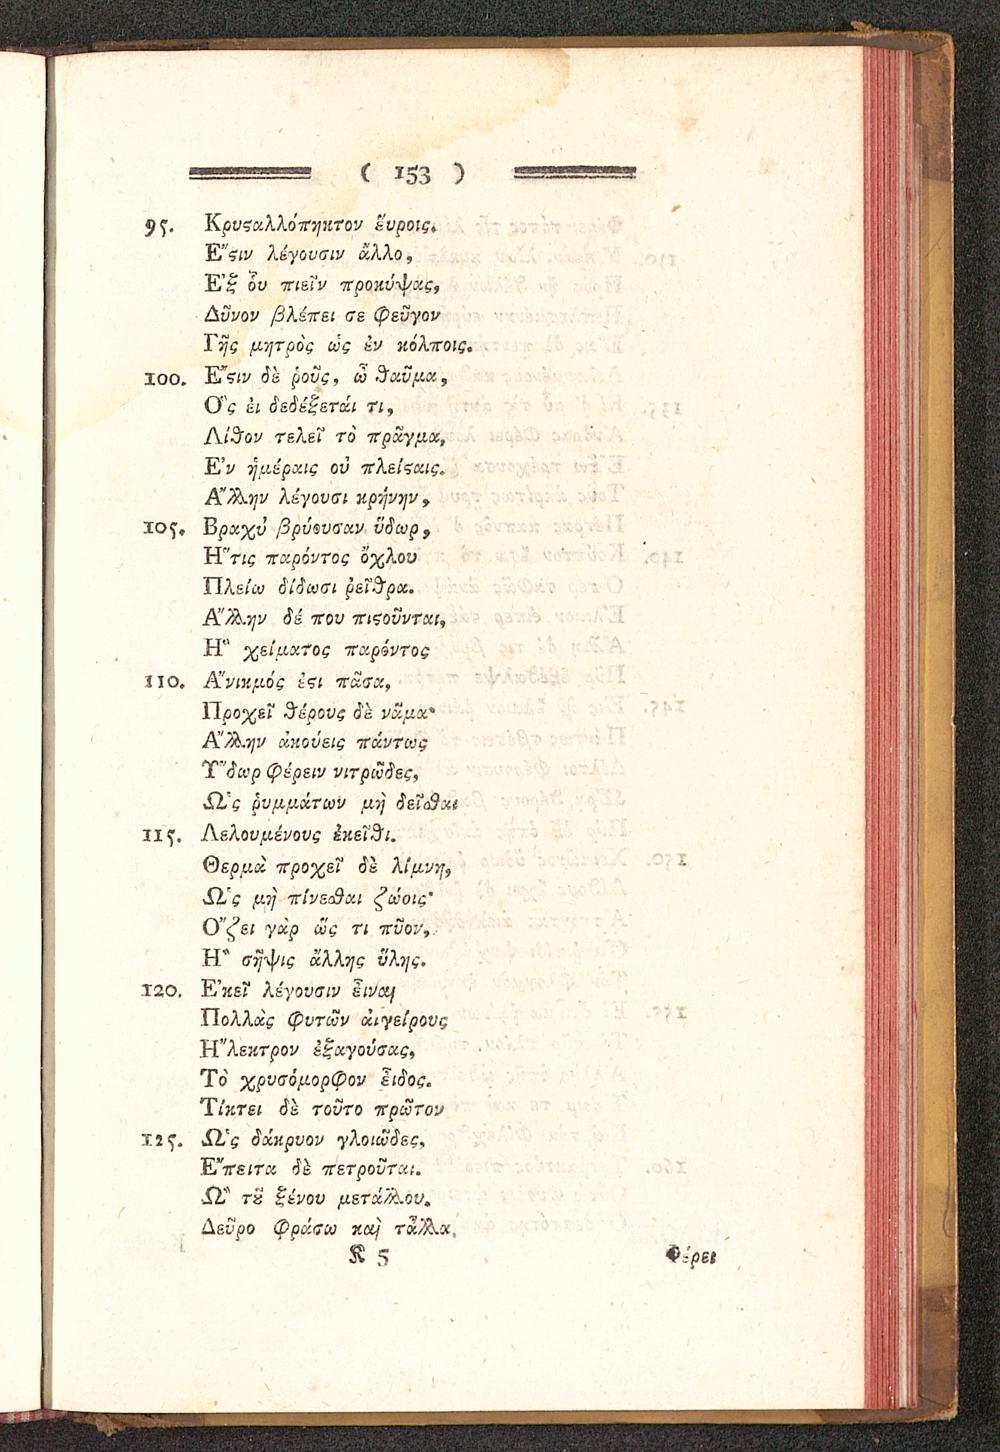 ( 153 )
95. Κρυϛαλλόπηκτον ἕυροις.
Ἔϛιν λέγουσιν ἄλλο,
Ἐξ ὃυ πιεῖν προκύψας,
Δῦνον βλέπει σε φεῦγον
Γῆς μητρὸς ὡς ἐν κόλποις.
100. Ἔϛιν δὲ ῥοῦς, ὦ θαῦμα,
Ὃς ἐι δεδέξεταί τι,
Λίθον τελεῖ τὸ πρᾶγμα,
Ἐν ἡμέραις οὐ πλείϛαις.
Ἄλλην λέγουσι κρήνην,
105. Βραχὺ βρύουσαν ὕδωρ,
Ἥτις παρόντος ὄχλου
Πλείω δίδωσι ῥεῖθρα.
Ἄλλην δέ που πιϛοῦνται,
Ἣ χείματος παρόντος
110. Ἄνικμός ἐϛι πᾶσα,
Προχεῖ θέρους δὲ νᾶμα·
Ἄλλην ἀκούεις πάντως
Ὕδωρ φέρειν νιτρῶδες,
Ὡς ῥυμμάτων μὴ δεῖσθαι
115. Λελουμένους ἐκεῖθι.
Θερμὰ προχεῖ δὲ λίμνη,
Ὡς μὴ πίνεσθαι ζώοις·
Ὄζει γὰρ ὥς τι πῦον,
Ἢ σῆψις ἄλλης ὕλης.
120. Ἐκεῖ λέγουσιν ἶιναι
Πολλὰς φυτῶν ἀιγείρους
Ἤλεκτρον ἐξαγούσας,
Τὸ χρυσόμορφον ἶιδος.
Τίκτει δὲ τοῦτο πρῶτον
125. Ὡς δάκρυον γλοιῶδες,
Ἔπειτα δὲ πετροῦται.
Ὢ τȣ͂ ξένου μετάλλου.
Δεῦρο φράσω καὶ τἆλλα,
K 5 Φέρει